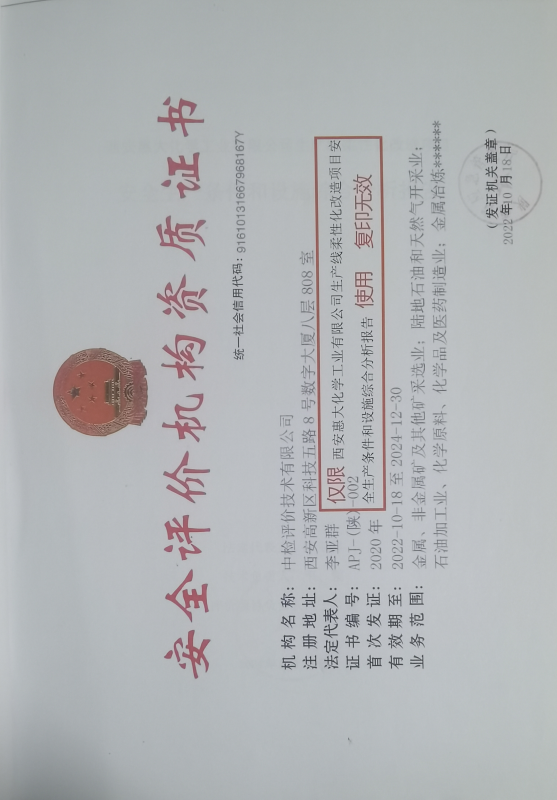 安全评价机构资质证书
统一社会信用代码：91610131667968167Y
机构名称：中检评价技术有限公司
注册地址：西安高新区科技五路8号数字大厦八层808室
法定代表人：李亚群
证书编号：APJ-(陕)-002
首次发证：2020年
有效期至：2022-10-18至2024-12-30
业务范围：金属、非金属矿及其他矿采选业；陆地石油和天然气开采业；
石油加工业、化学原料、化学品及医药制造业；金属冶炼******
仅限 西安惠大化学工业有限公司生产线柔性化改造项目安
全生产条件和设施综合分析报告 使用 复印无效
（发证机关盖章）
2022年10月18日